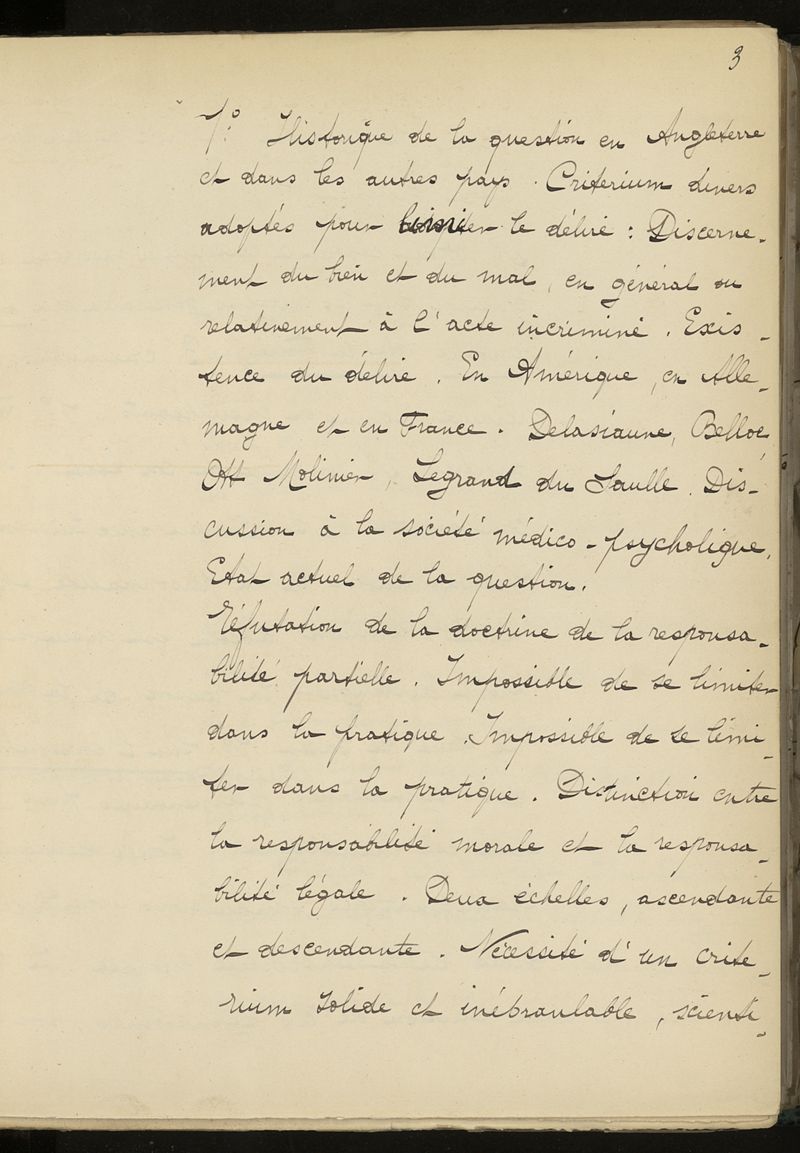 3
1º Historique de la question en Angleterre
et dans les autres pays. Criterium divers
adoptés pour limiter le délire : Discerne-
ment du bien et du mal, en général ou
relativement à l'acte incriminé. Exis-
tence du délire. En Amérique, en Alle-
magne et en France. Delasiauve, Belloc,
Ott Molinier, Legrand du Saulle. Dis-
cussion à la société médico-psycholigue.
Etat actuel de la question.
Réfutation de la doctrine de la responsa-
bilité partielle. Impossible de se limiter
dans la pratique. Impossible de se limi-
ter dans la pratique. Distinction entre
la responsabilité morale et la responsa-
bilité légale. Deux échelles, ascendante
et descendante. Nécessité d'un crite-
rium solide et inébranlable, scienti-